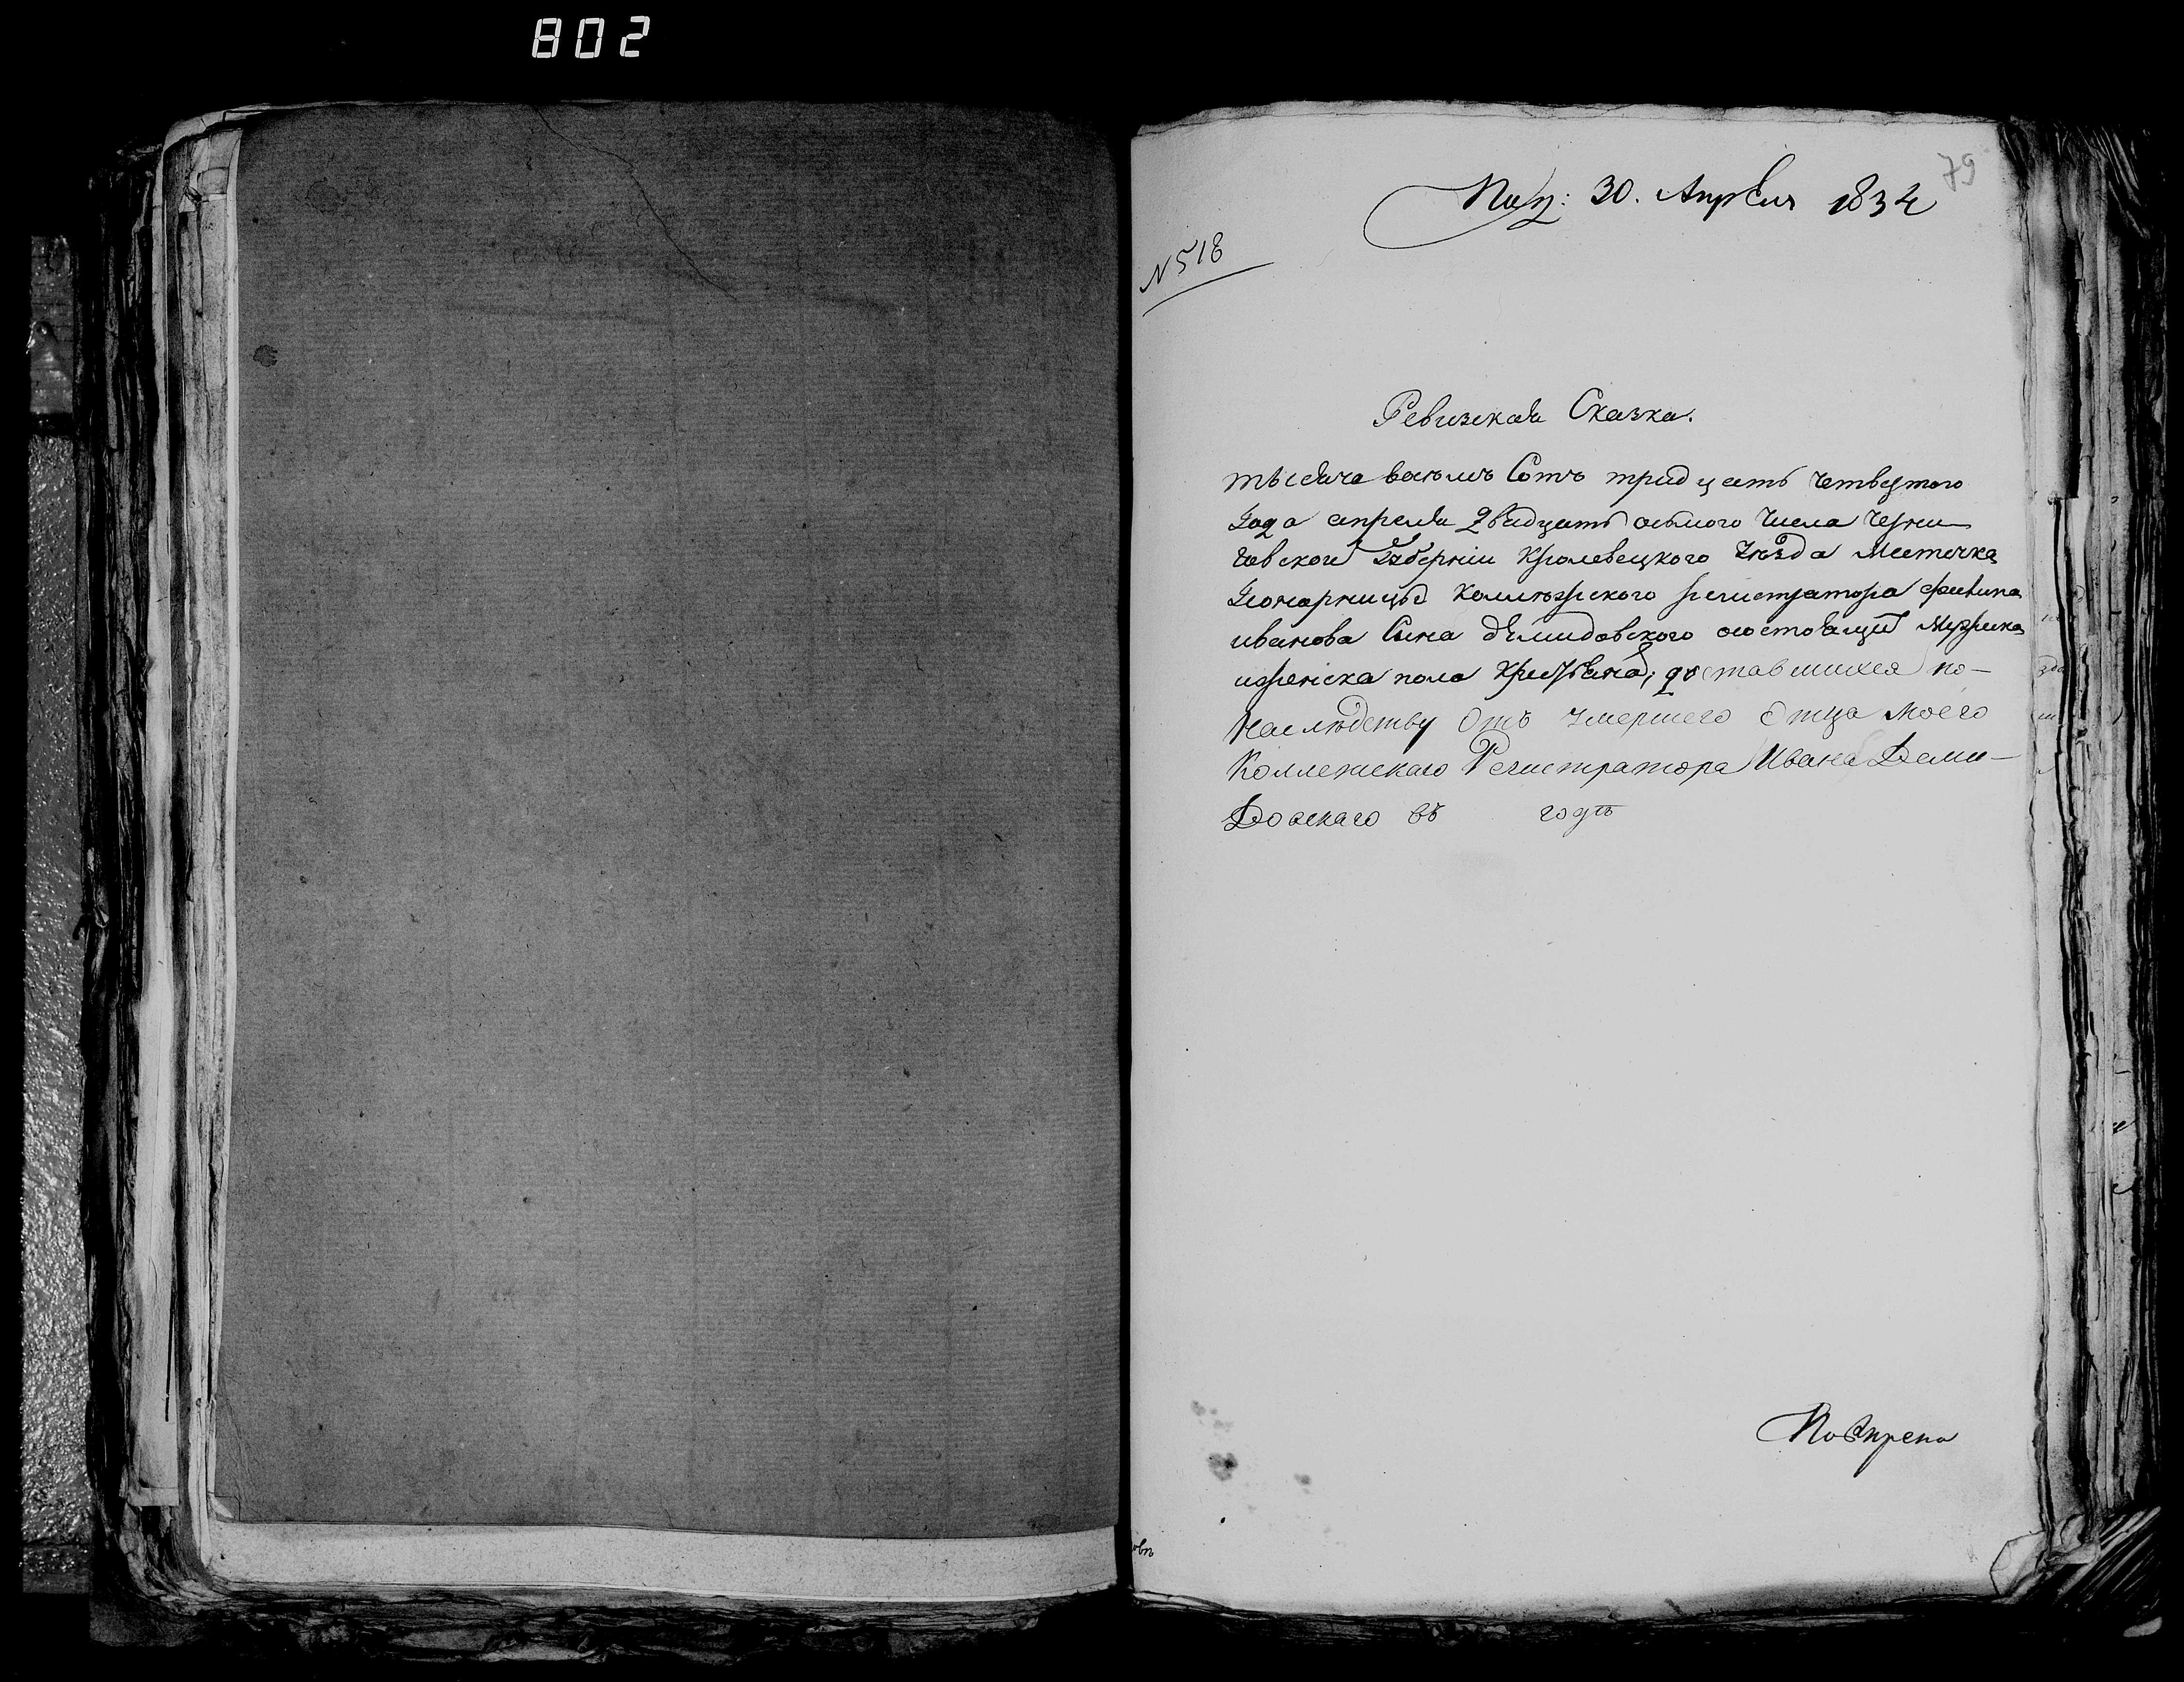 802
79
Пол: 30. Апреля 1834
N 518
Ревизская Сказка.
тысяча восемъ Сотъ тридцать четвертого
года апреля двадцать осмого числа Черни
говской Губерніи Кролевецкого уѣзда Местечка
Понорницы Коллѣжского регистратора филипа
иванова Сина дѣмидовского осостоящих мужеска
иженска пола крестьянах, доставшихся по-
наслѣдству отъ умершего Отца моего
Коллежскаго Регистратора Ивана Деми-
довскаго въ годѣ
Поверена
овъ